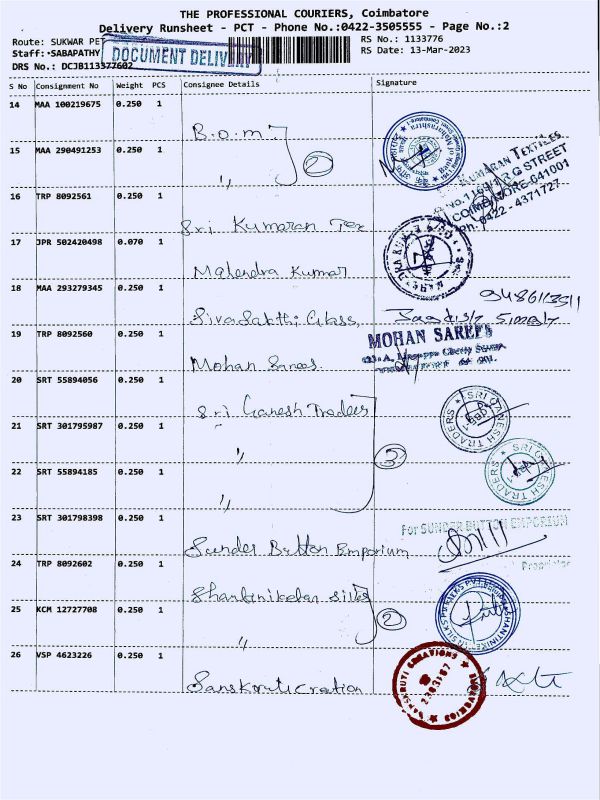 THE PROFESSIONAL COURIERS, Coimbatore
Delivery Runsheet - PCT - Phone No.:0422-3505555 - Page No.:2
Route: SUKWAR PET
RS No.: 1133776
Staff: SABAPATHY
DOCUMENT DELIVERY
RS Date: 13-Mar-2023
DRS No.: DCJB113377602
S No Consignment No Weight PCS Consignee Details Signature
14 MAA 100219675 0.250 1
B.O.M.
15 MAA 290491253 0.250 1
,, 2
KUMARAN TEXTILES
COIMBATORE-641001
Ph: 0422 - 4371727
16 TRP 8092561 0.250 1
Sri Kumaran Tex
17 JPR 502420498 0.070 1
Mahendra Kumar
18 MAA 293279345 0.250 1
Sivasakthi Glass
19 TRP 8092560 0.250 1
MOHAN SAREES
Mohan Sarees
20 SRT 55894056 0.250 1
Sri Ganesh Traders
SRI GANESH TRADERS
21 SRT 301795987 0.250 1
,, 3
SRI GANESH TRADERS
22 SRT 55894185 0.250 1
,,
23 SRT 301798398 0.250 1
For SUNDER BUTTON EMPORIUM
Sunder Button Emporium
24 TRP 8092602 0.250 1
Proprietor
Shantiniketan Silks
25 KCM 12727708 0.250 1
,, 2
26 VSP 4623226 0.250 1
SANSKRUTI CREATIONS
Sanskruti creation